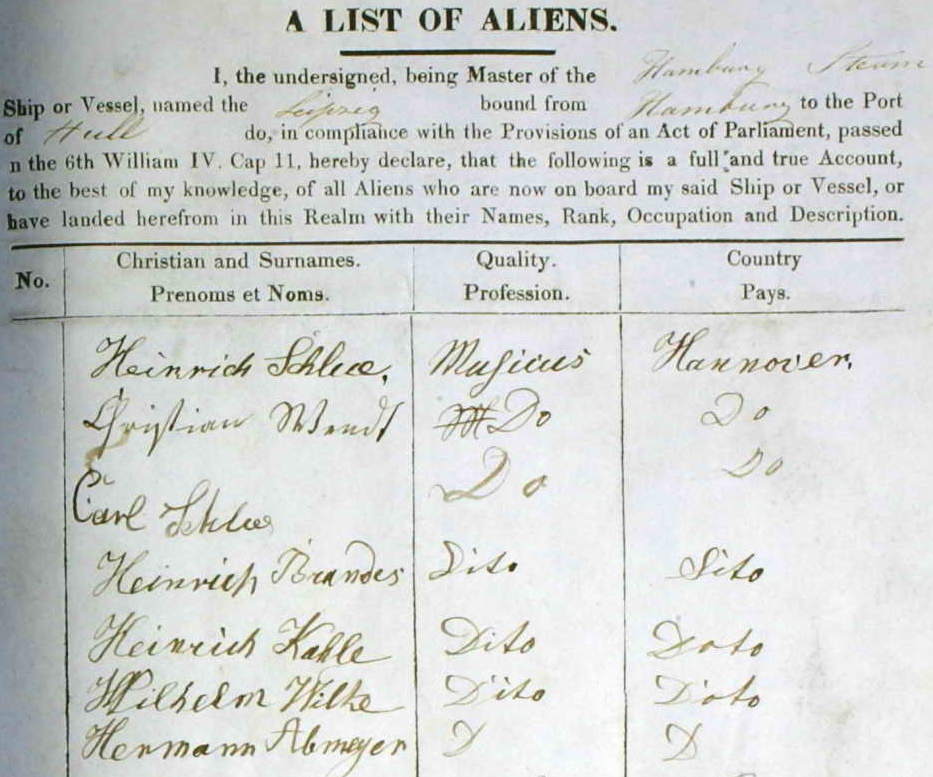 A LIST OF ALIENS.
I, the undersigned, being Master of the Hamburg Steam
Ship or Vessel, named the Leipzig bound from Hamburg to the Port
of Hull do, in compliance with the Provisions of an Act of Parliament, passed
n the 6th William IV. Cap 11, hereby declare, that the following is a full and true Account,
to the best of my knowledge, of all Aliens who are now on board my said Ship or Vessel, or
have landed herefrom in this Realm with their Names, Rank, Occupation and Description.
No. Christian and Surnames. Quality. Country
Prenoms et Noms. Profession. Pays.
Heinrich Schlue, Musicus Hannover.
Christian Wendt Do Do
Carl Schlue Do Do
Heinrich Brandes Dito Dito
Heinrich Kahle Dito Doto
Wilhelm Wilke Dito Doto
Hermann Abmeyer D D